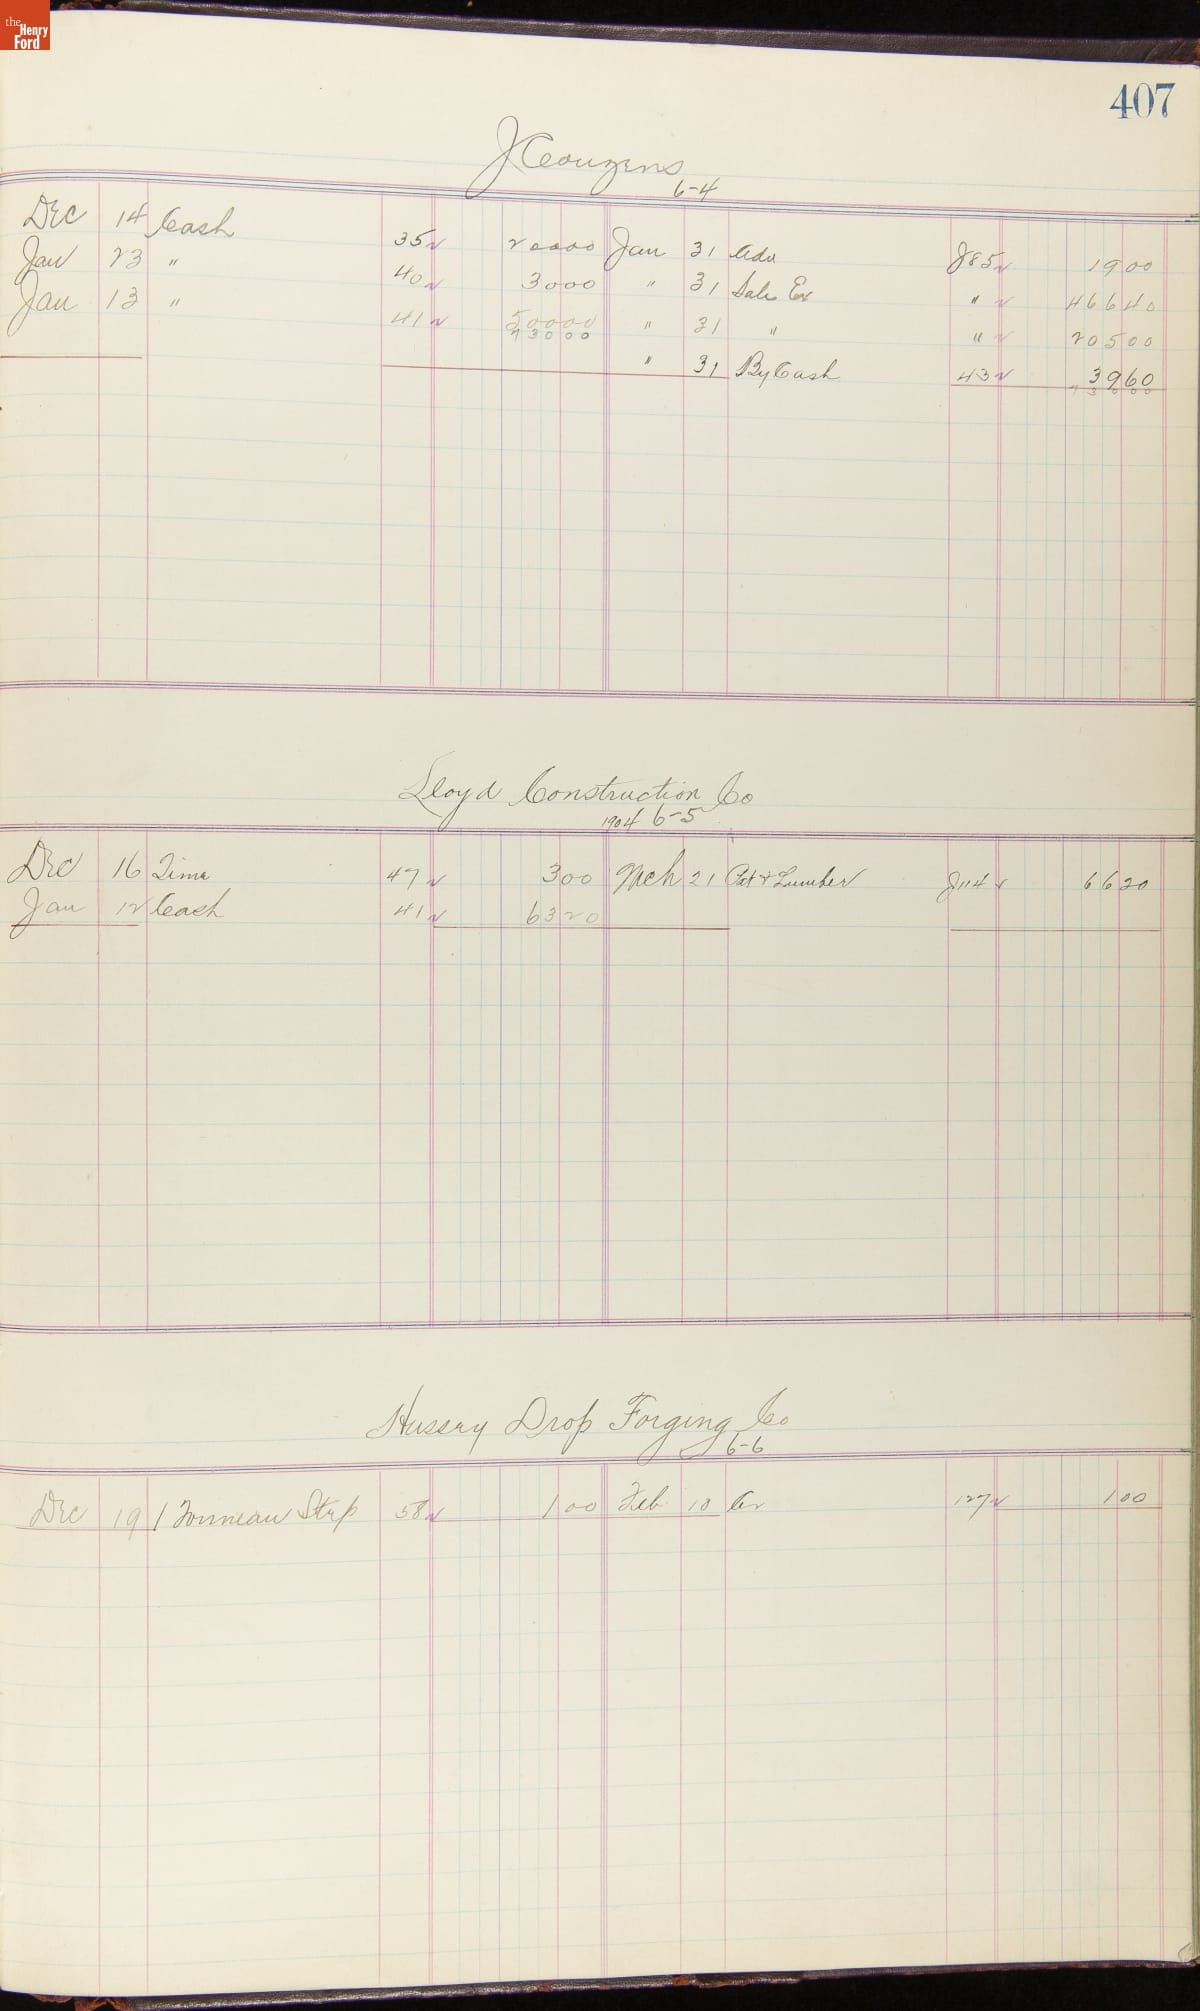 the Henry Ford
407
J Couzens
6-4
Dec 14 Cash 35 200 00 Jan 31 Adv J85 19 00
Jan 23 " 40 30 00 " 31 Sales Ex " 466 40
Jan 13 " 41 500 00 " 31 " " 205 00
730 00 " 31 By Cash 43 39 60
730 00
Lloyd Construction Co
1904 6-5
Dec 16 Time 47 3 00 Mch 21 Pat & Lumber J114 66 20
Jan 12 Cash 41 63 20
Hussey Drop Forging Co
6-6
Dec 19 1 Tonneau Step 58 1 00 Feb 10 Cr 127 1 00